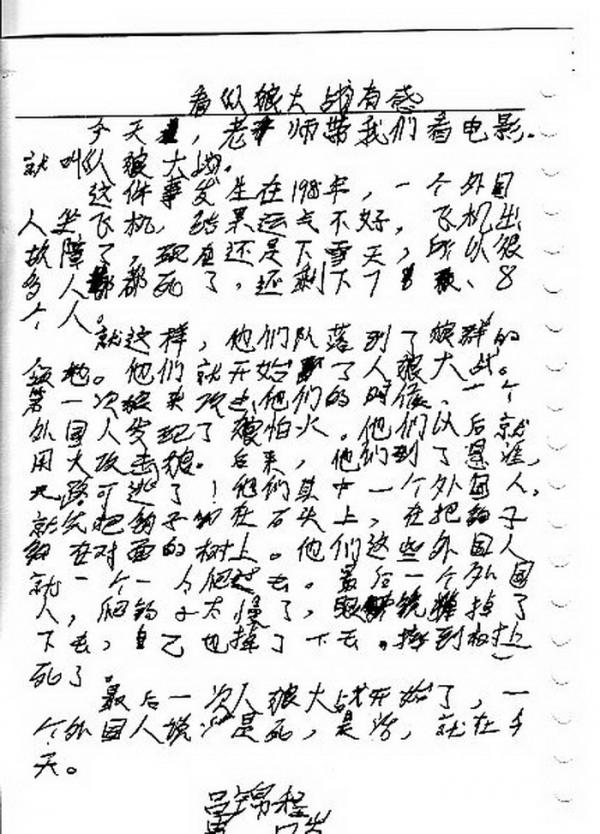 看从狼大战有感
今天，老师带我们看电影。
就叫从狼大战。
这件事发生在198年，一个外国
人坐飞机，结果运气不好，飞机出
故障了，现在还是下雪天，所以很
多人都死了，还剩下7、8
个人。
就这样，他们队落到了狼群的
领地。他们就开始了人狼大战。
第一次狼来攻击他们的时候，一个
外国人发现了狼怕火。他们以后就
用火攻击狼。后来，他们到了悬涯，
无路可逃了！他们其中一个外国人，
就先把绳子绑在石头上，在把绳子
绑在对面的树上。他们这些外国人
就一个一个爬过去。最后一个外国
人，爬的太慢了，掉了
下去，自己也掉了下去。摔到树上
死了。
最后一次人狼大战开始了，一
个外国人说：是死，是活，就在今
天。
吕锦程